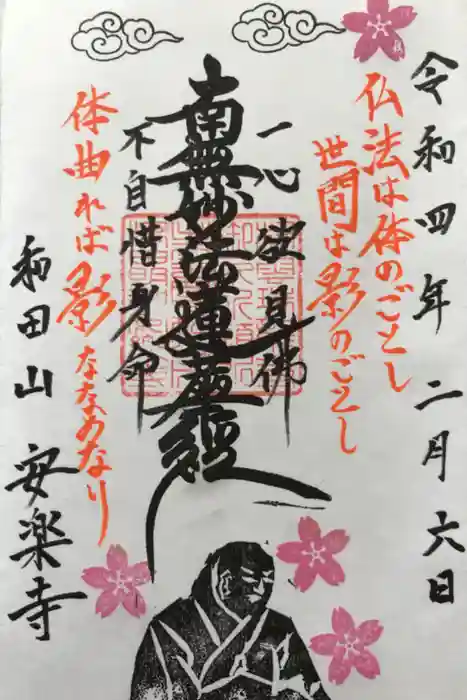 令和四年 二月六日
仏法は体のごとし
世間は影のごとし
一心欲見佛
南無妙法蓮華經
不自惜身命
体曲れば影ななめなり
和田山 安楽寺